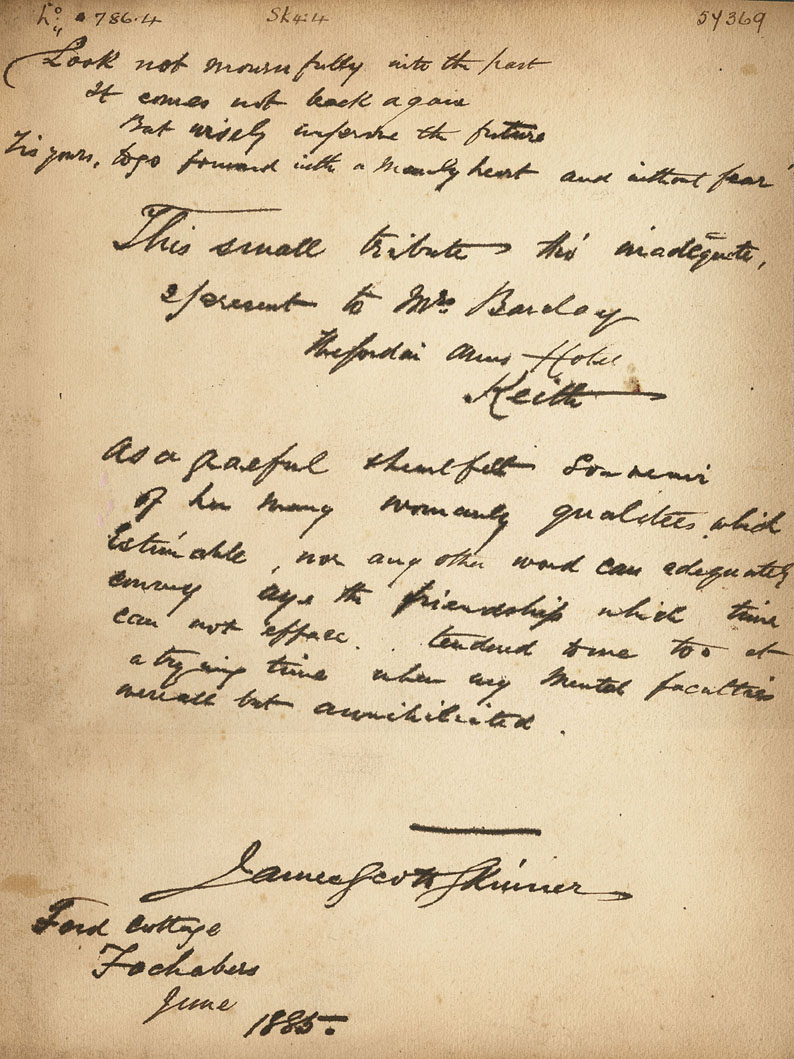 Lo 786.4 Sk4:4 54369
Look not mournfully into the past
It comes not back again
But wisely improve the future
Tis yours, to go forward with a manly heart and without fear
This small tribute tho' inadequate,
I present to Mrs Barclay
Arms Hotel
Keith
As a graceful & heartfelt Souvenir
of her many womanly qualities which
Estimable, nor any other word can adequately
convey aye the friendship which time
can not efface. tendered to me too at
a trying time when my Mental faculties
were all but annihiliated.
James Scott Skinner
Ford Cottage
Fochabers
June
1885.